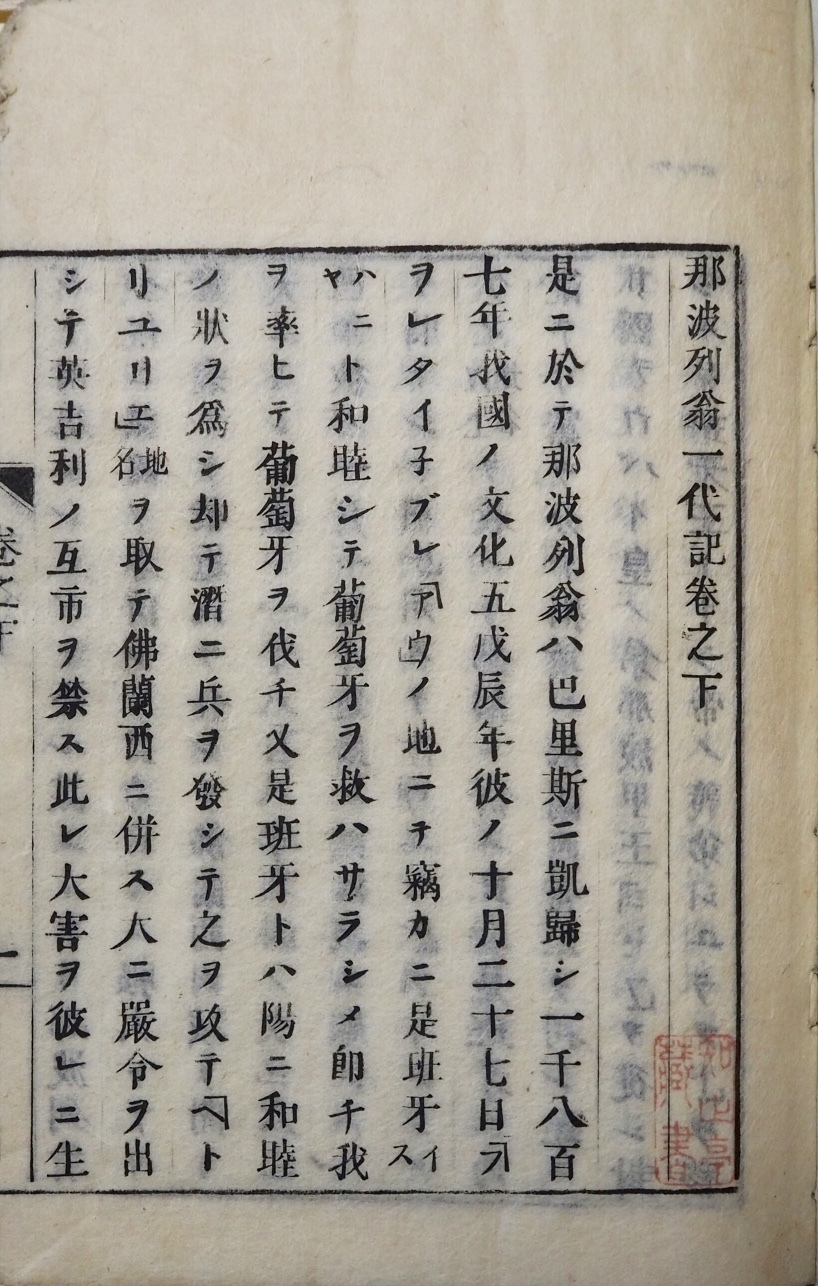 那波列翁一代記卷之下
是ニ於テ那波列翁ハ巴里斯ニ凱歸シ一千八百
七年我國ノ文化五戊辰年彼ノ十月二十七日「フ
ヲレタイ子ブレ「アウ」ノ地ニテ竊カニ是班牙イス
ハヤニト和睦シテ葡萄牙ヲ救ハサラシメ卽チ我
ヲ率ヒテ葡萄牙ヲ伐チ又是班牙トハ陽ニ和睦
ノ狀ヲ爲シ却テ潛ニ兵ヲ發シテ之ヲ攻テ「ヘト
リユリエ」地名ヲ取テ佛蘭西ニ併ス大ニ嚴令ヲ出
シテ英吉利ノ互市ヲ禁ス此レ大害ヲ彼レニ生
卷之下
一
藏書